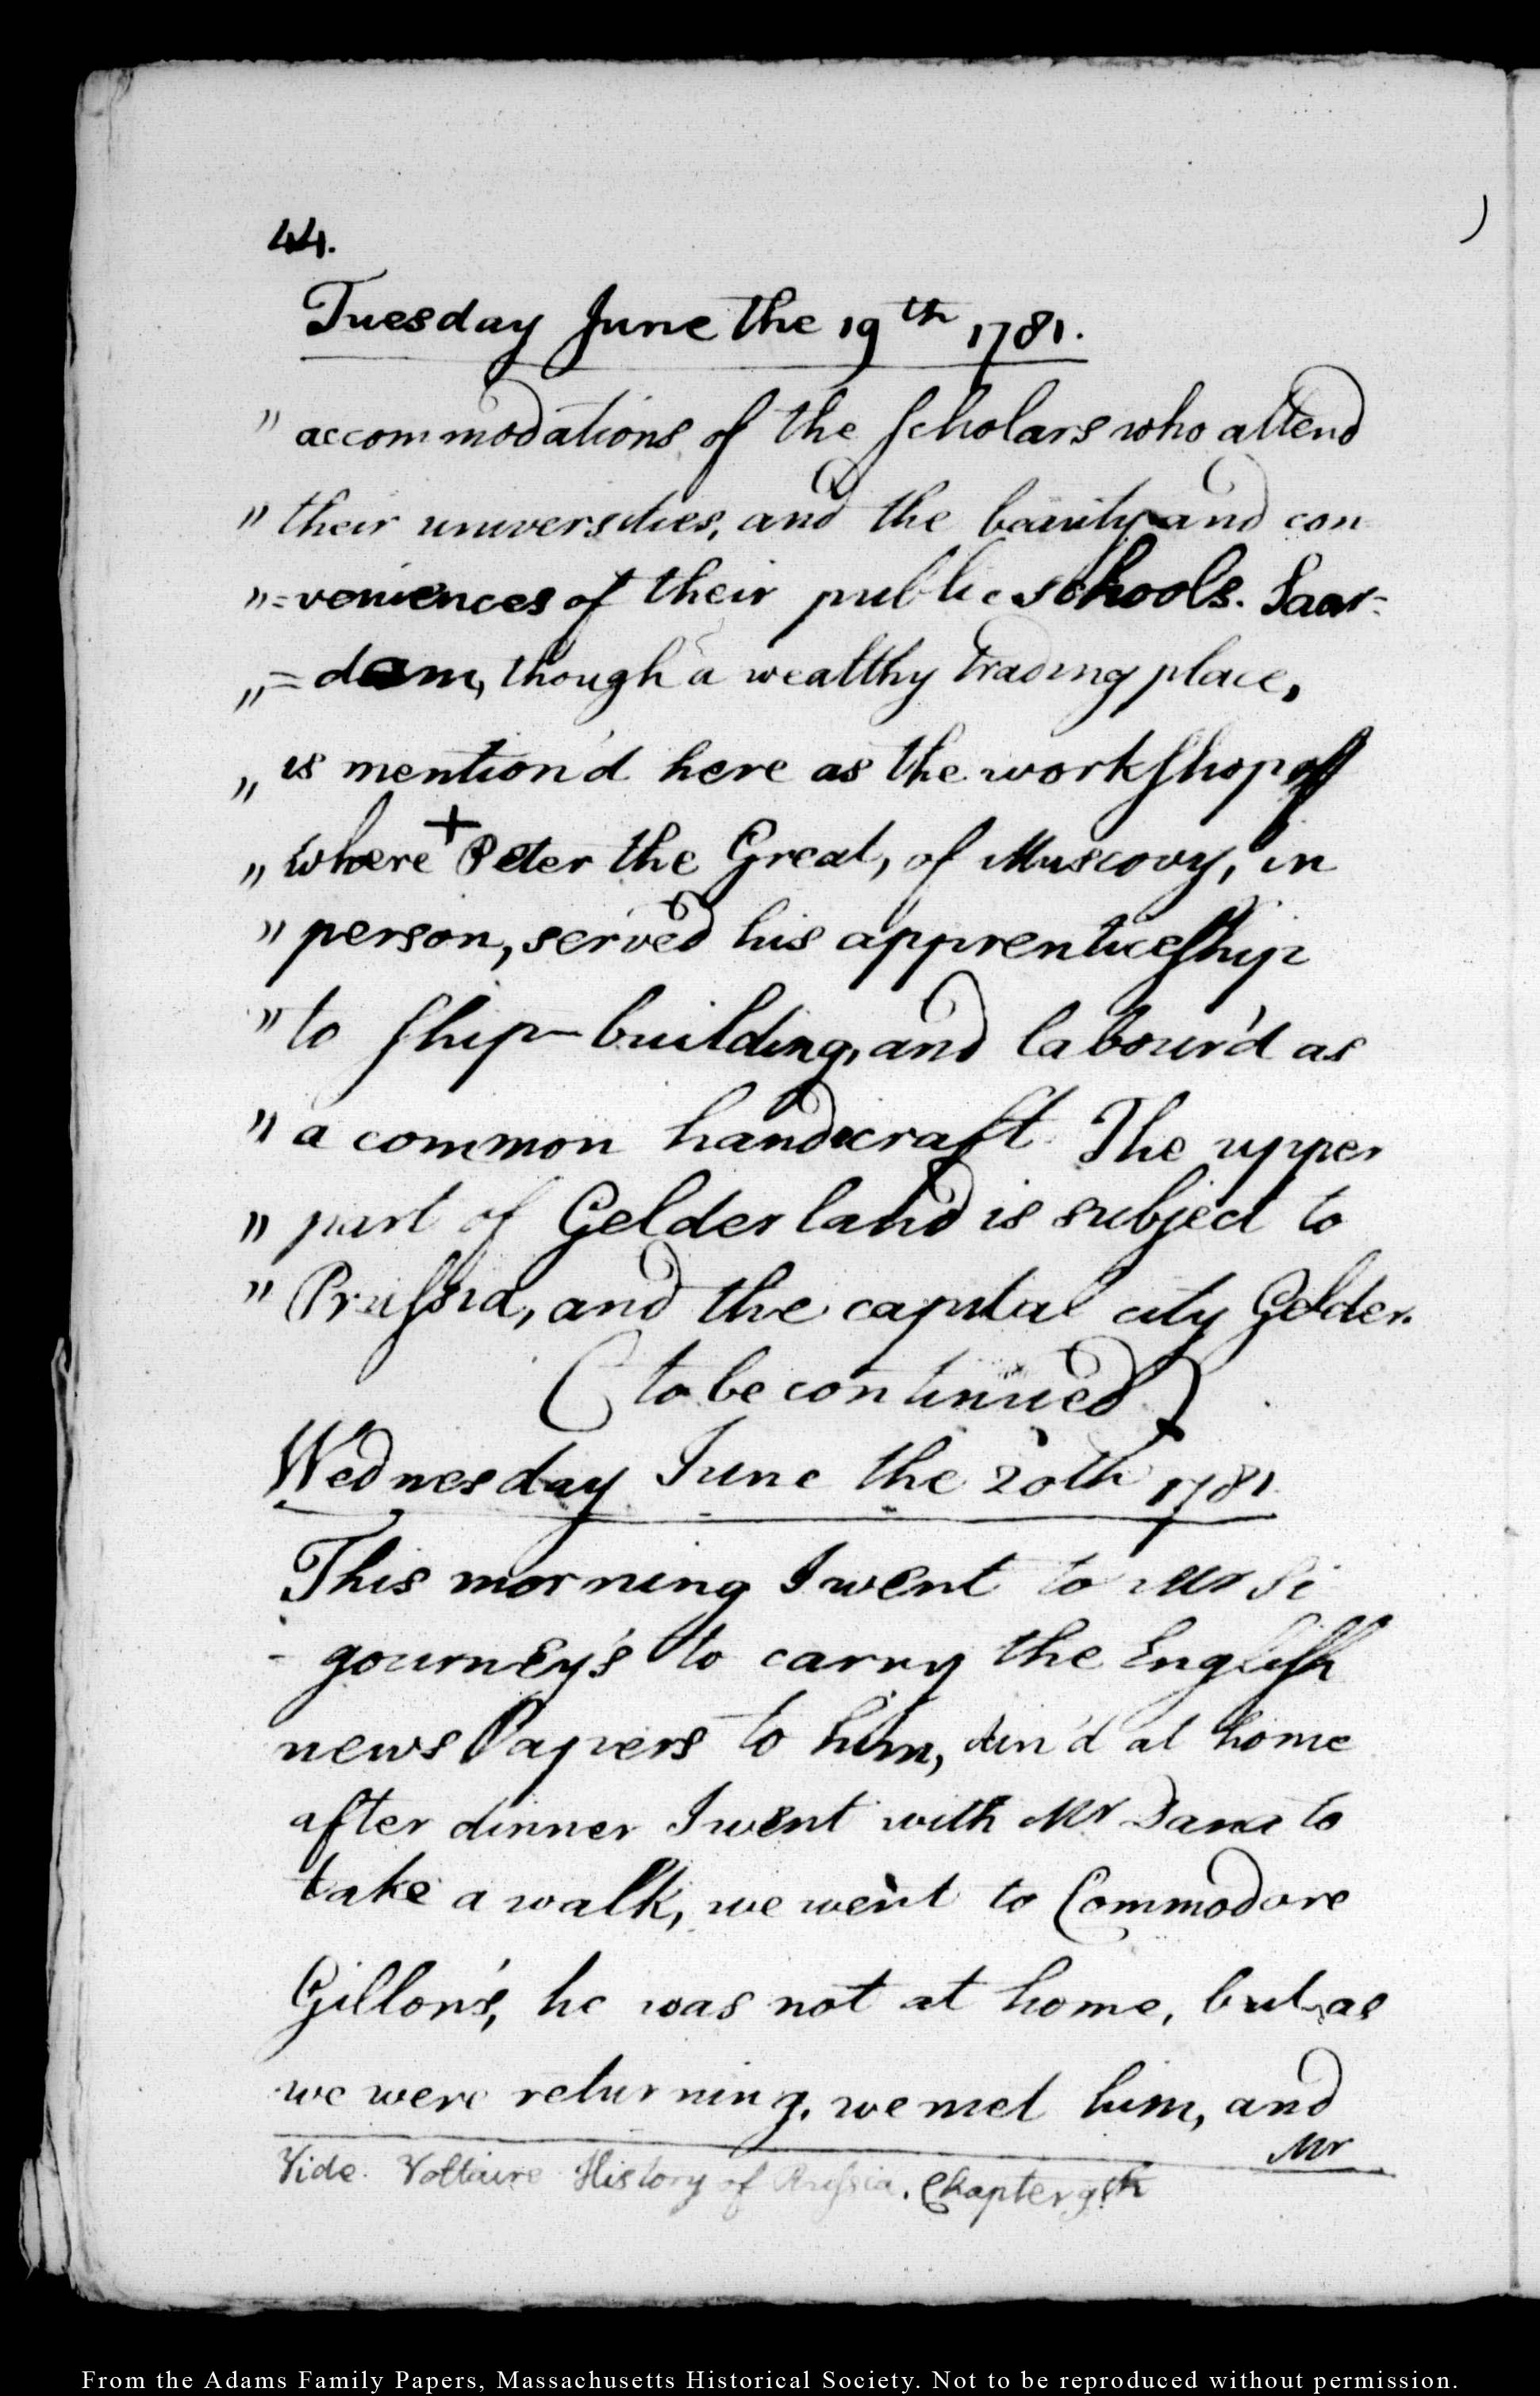 44.
)
Tuesday June the 19th 1781.
" accommodations of the scholars who attend
" their universities, and the beauty and con
" =veniences of their public schools. Saar=
" =dam, though a wealthy trading place,
" is mention'd here as the workshop of
" where + Peter the Great, of Muscovy, in
" person, served his apprenticeship
" to ship-building, and labour'd as
" a common handicraft. The upper
" part of Gelderland is subject to
" Prussia, and the capital city Gelder.
( to be continued )
Wednesday June the 20th 1781
This morning I went to Mr Si
- gourney's to carry the English
news Papers to him, din'd at home
after dinner I went with Mr Dana to
take a walk, we went to Commodore
Gillon's, he was not at home, but as
we were returning, we met him, and
Mr
Vide. Voltaire History of Russia. Chapter 9th
From the Adams Family Papers, Massachusetts Historical Society. Not to be reproduced without permission.